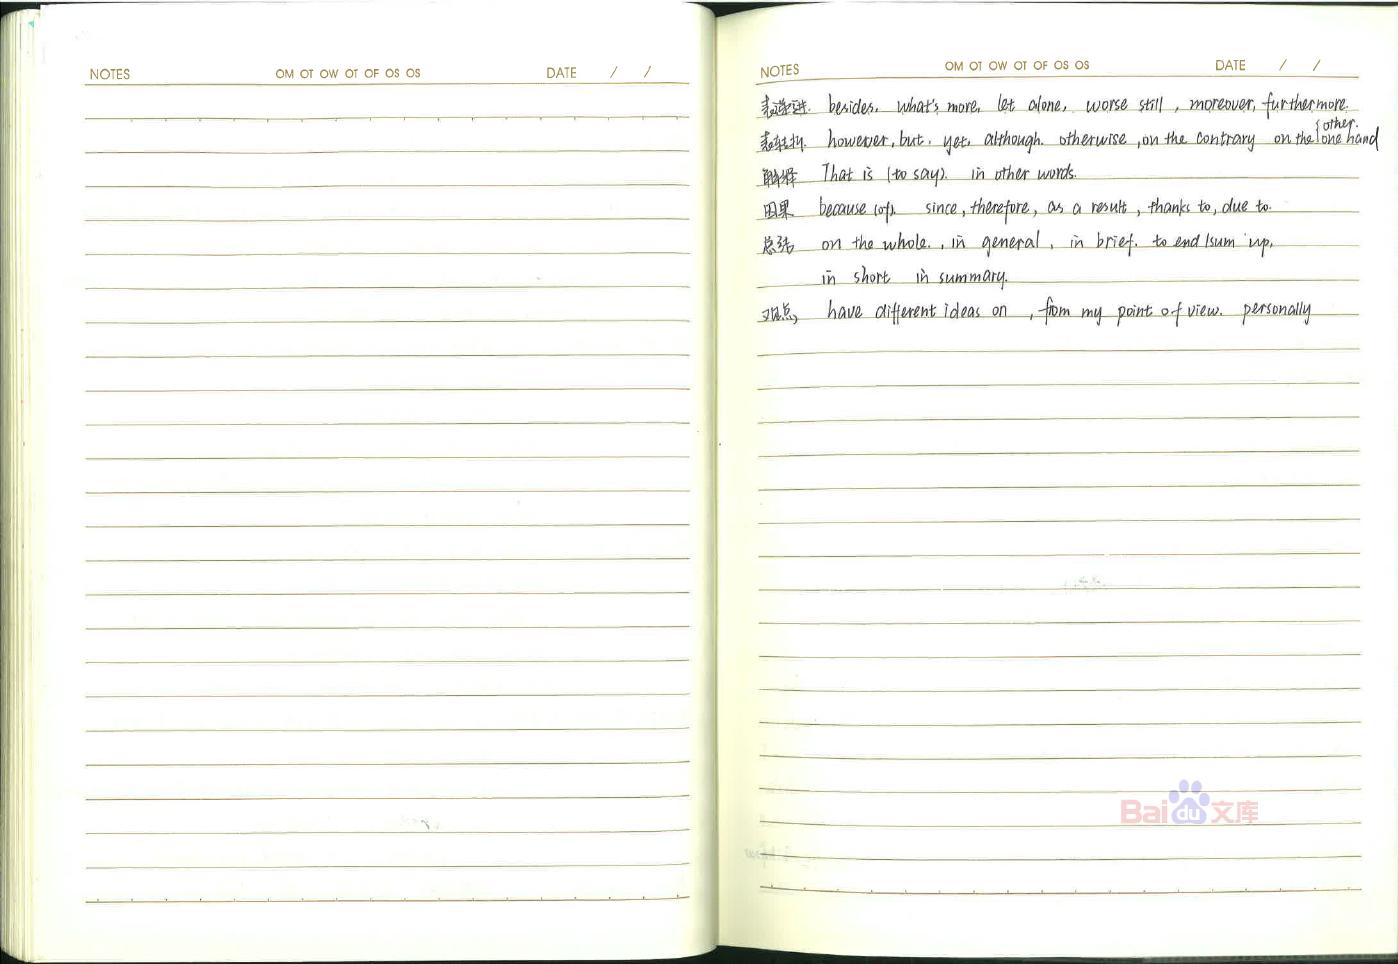 NOTES OM OT OW OT OF OS OS DATE / /
NOTES OM OT OW OT OF OS OS DATE / /
表递进. besides, what's more, let alone, worse still, moreover, furthermore.
表转折. however, but, yet, although. otherwise, on the contrary on the {other. one hand
解释 That is (to say). in other words.
因果 because (of). since, therefore, as a result, thanks to, due to.
总结 on the whole., in general, in brief. to end/sum up,
in short in summary.
观点, have different ideas on , from my point of view. personally
Baidu文库